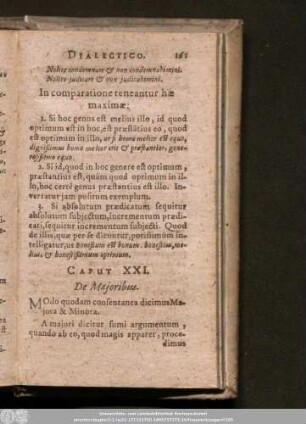 DIALECTICO. 161
Nolite condemnare & non condemnabimini.
Nolite judicare & non judicabimini.
In comparatione teneantur hæ
maximæ;
1. Si hoc genus est melius illo, id quod
optimum est in hoc, est præstãtius eo, quod
est optimum in illo, ut si homo melior est equo,
dignissimus homo melior erit & præstantior, gene-
rosissimo equo.
2. Si id, quod in hoc genere est optimum,
præstantius est, quàm quod optimum in il-
lo, hoc certè genus præstantius est illo. In-
vertatur jam positum exemplum.
3. Si absolutum prædicatum sequitur
absolutum subjectum, incrementum prædi-
cati, sequitur incrementum subjecti. Quod
de illis, quæ per se dicuntur, potissimùm in-
telligatur, ut honestum est bonum. honestius, me-
lius, & honestissimum optimum.
CAPUT XXI.
De Majoribus.
MOdo quodam consentanea dicimus Ma-
jora & Minora.
A majori dicitur sumi argumentum,
quando ab eo, quod magis apparet, proce-
dimus